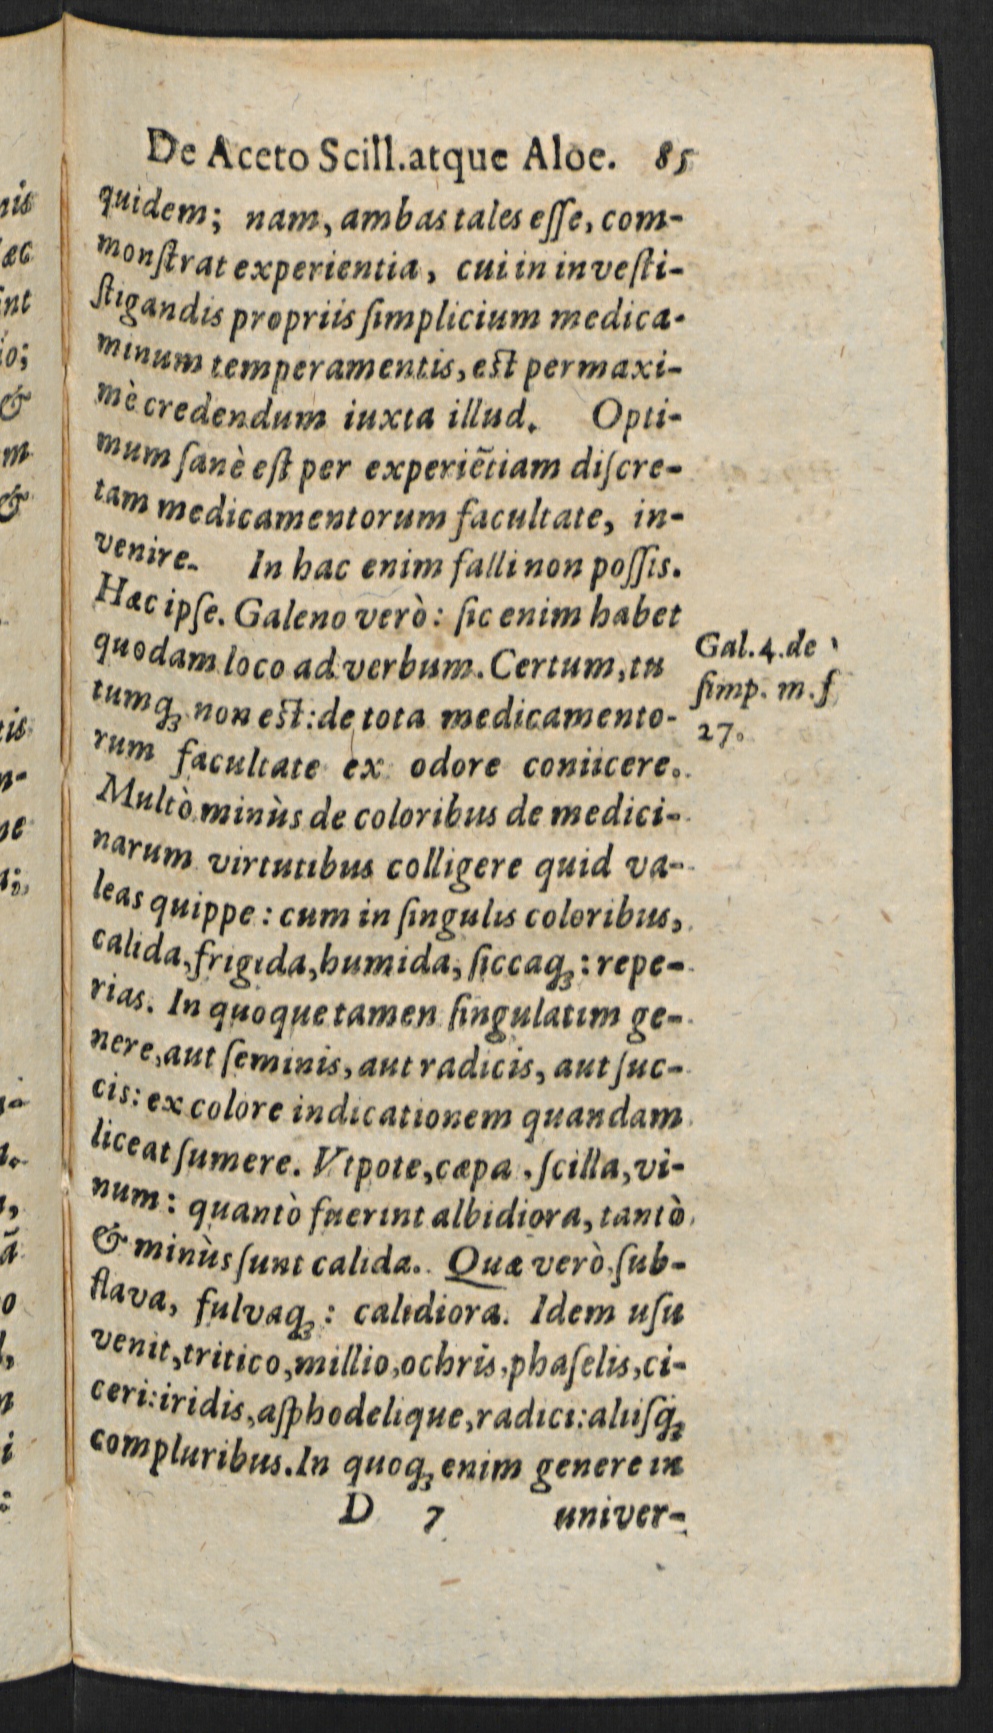 De Aceto Scill. atque Aloe. 85
quidem; nam, ambas tales eſſe, com-
monſtrat experientia, cui in inveſti-
ſtigandis propriis ſimplicium medica-
minum temperamentis, eſt permaxi-
mè credendum iuxta illud. Opti-
mum ſanè eſt per experiẽtiam diſcre-
tam medicamentorum facultate, in-
venire. In hac enim falli non poſſis.
Hæc ipſe. Galeno verò: ſic enim habet
quodam loco ad verbum. Certum, tu
tumq́; non eſt: de tota medicamento-
rum facultate ex odore coniicere.
Multò minùs de coloribus de medici-
narum virtutibus colligere quid va-
leas quippe: cum in ſingulis coloribus,
calida, frigida, humida, ſiccaq́;: repe-
rias. In quoque tamen ſingulatim ge-
nere, aut ſeminis, aut radicis, aut ſuc-
cis: ex colore indicationem quandam
liceat ſumere. Vtpote, cæpa, ſcilla, vi-
num: quantò fuerint albidiora, tantò
& minùs ſunt calida. Quæ verò ſub-
flava, fulvaq́;: calidiora. Idem uſu
venit, tritico, millio, ochris, phaſelis, ci-
ceri: iridis, aſphodelique, radici: aliiſq́;
compluribus. In quoq́; enim genere in
D 7 univer-
Gal. 4. de
ſimp. m. f
27.